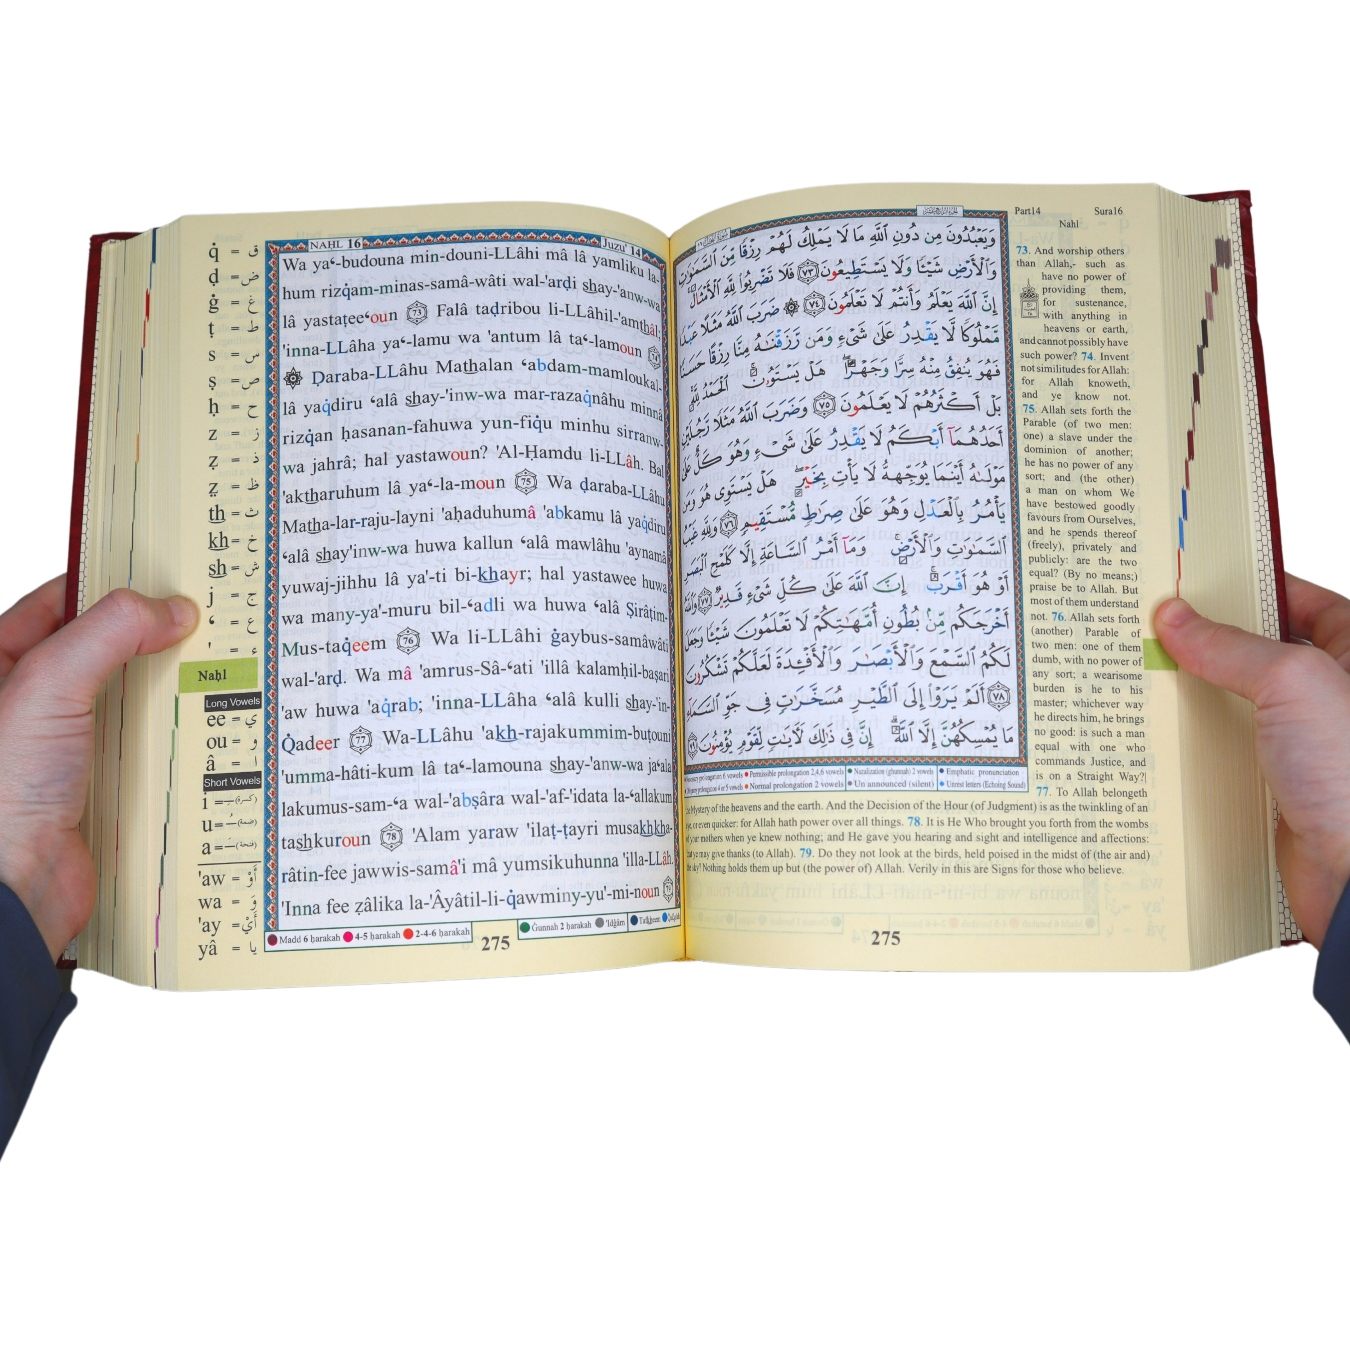 q̇ = ق
ḍ = ض
ġ = غ
ṭ = ط
s = س
ṣ = ص
ḥ = ح
z = ز
ẓ = ذ
ẓ = ظ
th = ث
kh = خ
sh = ش
j = ج
ʿ = ع
' = ء
Naḥl
Long Vowels
ee = ي
ou = و
â = ا
Short Vowels
i =
u =
a =
'aw = أَوْ
wa = وَ
'ay = أَيْ
yâ = يا
NAḤL 16
Juzu' 14
Wa yaʿ-budouna min-douni-LLâhi mâ lâ yamliku la-
hum rizq̇am-minas-samâ-wâti wal-'arḍi shay-'anw-wa
lâ yastaṭeeʿoun 73 Falâ taḍribou li-LLâhil-'amthâl;
'inna-LLâha yaʿ-lamu wa 'antum lâ taʿ-lamoun 74
Ḍaraba-LLâhu Mathalan ʿabdam-mamloukal-
lâ yaq̇diru ʿalâ shay-'inw-wa mar-razaq̇nâhu minnâ
rizq̇an ḥasanan-fahuwa yun-fiq̇u minhu sirranw-
wa jahrâ; hal yastawoun? 'Al-Ḥamdu li-LLâh. Bal
'aktharuhum lâ yaʿ-la-moun 75 Wa ḍaraba-LLâhu
Matha-lar-raju-layni 'aḥaduhumâ 'abkamu lâ yaq̇diru
ʿalâ shay'inw-wa huwa kallun ʿalâ mawlâhu 'aynamâ
yuwaj-jihhu lâ ya'-ti bi-khayr; hal yastawee huwa
wa many-ya'-muru bil-ʿadli wa huwa ʿalâ Ṣirâṭim-
Mus-taq̇eem 76 Wa li-LLâhi ġaybus-samâwâti
wal-'arḍ. Wa mâ 'amrus-Sâ-ʿati 'illâ kalamḥil-baṣari
'aw huwa 'aq̇rab; 'inna-LLâha ʿalâ kulli shay-'in-
Q̇adeer 77 Wa-LLâhu 'akh-rajakummim-buṭouni
'umma-hâti-kum lâ taʿ-lamouna shay-'anw-wa jaʿala
lakumus-sam-ʿa wal-'abṣâra wal-'af-'idata la-ʿallakum
tashkuroun 78 'Alam yaraw 'ilaṭ-ṭayri musakhkha-
râtin-fee jawwis-samâ'i mâ yumsikuhunna 'illa-LLâh.
'Inna fee ẓâlika la-'Âyâtil-li-q̇awminy-yu'-mi-noun 79
Madd 6 ḥarakah 4-5 ḥarakah 2-4-6 ḥarakah
Ġunnah 2 ḥarakah 'Idġâm Tafkheem
275
وَيَعْبُدُونَ مِن دُونِ اللَّهِ مَا لَا يَمْلِكُ لَهُمْ رِزْقًا مِّنَ السَّمَٰوَٰتِ
وَالْأَرْضِ شَيْئًا وَلَا يَسْتَطِيعُونَ ٧٣ فَلَا تَضْرِبُوا لِلَّهِ الْأَمْثَالَ
إِنَّ اللَّهَ يَعْلَمُ وَأَنتُمْ لَا تَعْلَمُونَ ٧٤ ۞ ضَرَبَ اللَّهُ مَثَلًا عَبْدًا
مَّمْلُوكًا لَّا يَقْدِرُ عَلَىٰ شَيْءٍ وَمَن رَّزَقْنَٰهُ مِنَّا رِزْقًا حَسَنًا
فَهُوَ يُنفِقُ مِنْهُ سِرًّا وَجَهْرًا ۖ هَلْ يَسْتَوُونَ ۚ الْحَمْدُ لِلَّهِ ۚ
بَلْ أَكْثَرُهُمْ لَا يَعْلَمُونَ ٧٥ وَضَرَبَ اللَّهُ مَثَلًا رَّجُلَيْنِ
أَحَدُهُمَا أَبْكَمُ لَا يَقْدِرُ عَلَىٰ شَيْءٍ وَهُوَ كَلٌّ عَلَىٰ
مَوْلَىٰهُ أَيْنَمَا يُوَجِّههُّ لَا يَأْتِ بِخَيْرٍ ۖ هَلْ يَسْتَوِي هُوَ وَمَن
يَأْمُرُ بِالْعَدْلِ وَهُوَ عَلَىٰ صِرَٰطٍ مُّسْتَقِيمٍ ٧٦ وَلِلَّهِ غَيْبُ
السَّمَٰوَٰتِ وَالْأَرْضِ ۚ وَمَا أَمْرُ السَّاعَةِ إِلَّا كَلَمْحِ الْبَصَرِ
أَوْ هُوَ أَقْرَبُ ۚ إِنَّ اللَّهَ عَلَىٰ كُلِّ شَيْءٍ قَدِيرٌ ٧٧ وَاللَّهُ
أَخْرَجَكُم مِّنۢ بُطُونِ أُمَّهَٰتِكُمْ لَا تَعْلَمُونَ شَيْئًا وَجَعَلَ
لَكُمُ السَّمْعَ وَالْأَبْصَٰرَ وَالْأَفْـِٔدَةَ لَعَلَّكُمْ تَشْكُرُونَ
٧٨ أَلَمْ يَرَوْا إِلَى الطَّيْرِ مُسَخَّرَٰتٍ فِي جَوِّ السَّمَاءِ
مَا يُمْسِكُهُنَّ إِلَّا اللَّهُ ۗ إِنَّ فِي ذَٰلِكَ لَءَايَٰتٍ لِّقَوْمٍ يُؤْمِنُونَ ٧٩
prolongation 6 vowels Permissible prolongation 2,4,6 vowels Nazalization (ghunnah) 2 vowels Emphatic pronunciation
prolongation 4 or 5 vowels Normal prolongation 2 vowels Un announced (silent) Unrest letters (Echoing Sound)
Part14 Sura16
Nahl
73. And worship others
than Allah,- such as
have no power of
providing them,
for sustenance,
with anything in
heavens or earth,
and cannot possibly have
such power? 74. Invent
not similitudes for Allah:
for Allah knoweth,
and ye know not.
75. Allah sets forth the
Parable (of two men:
one) a slave under the
dominion of another;
he has no power of any
sort; and (the other)
a man on whom We
have bestowed goodly
favours from Ourselves,
and he spends thereof
(freely), privately and
publicly: are the two
equal? (By no means;)
praise be to Allah. But
most of them understand
not. 76. Allah sets forth
(another) Parable of
two men: one of them
dumb, with no power of
any sort; a wearisome
burden is he to his
master; whichever way
he directs him, he brings
no good: is such a man
equal with one who
commands Justice, and
is on a Straight Way?
77. To Allah belongeth
the Mystery of the heavens and the earth. And the Decision of the Hour (of Judgment) is as the twinkling of an
eye, or even quicker: for Allah hath power over all things. 78. It is He Who brought you forth from the wombs
of your mothers when ye knew nothing; and He gave you hearing and sight and intelligence and affections:
that ye may give thanks (to Allah). 79. Do they not look at the birds, held poised in the midst of (the air and)
the sky? Nothing holds them up but (the power of) Allah. Verily in this are Signs for those who believe.
275